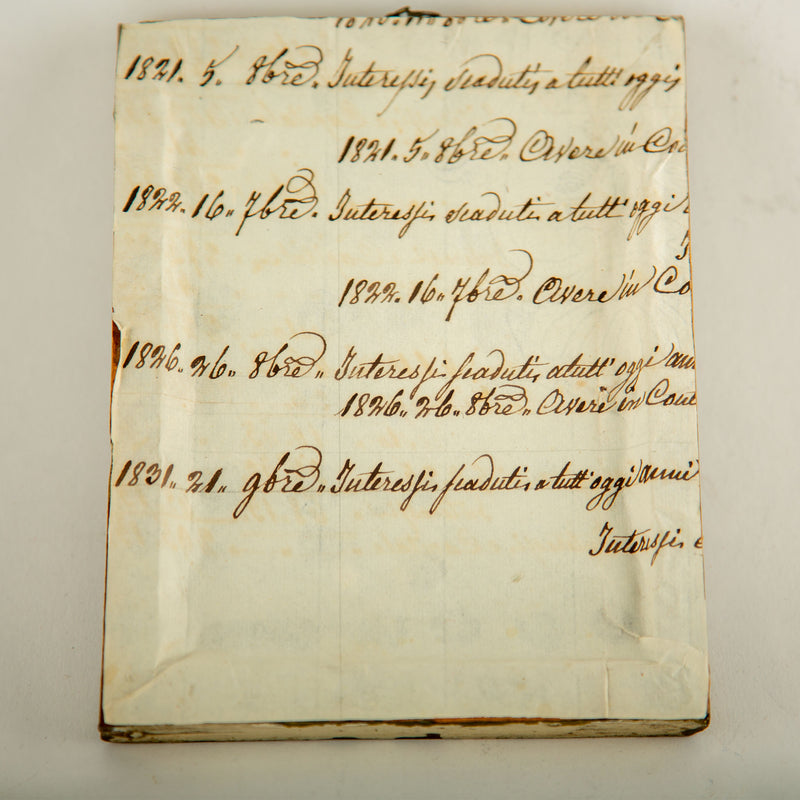 Avere in
1821. 5. 8bre. Interessi scaduti a tutt' oggi
1821. 5. 8bre. Avere in
1822. 16. 7bre. Interessi scaduti a tutt' oggi
1822. 16. 7bre. Avere in Co
1826. 26. 8bre. Interessi scaduti a tutt' oggi
1826. 26. 8bre. Avere in Cont
1831. 21. 9bre. Interessi scaduti a tutt' oggi anni
Interessi